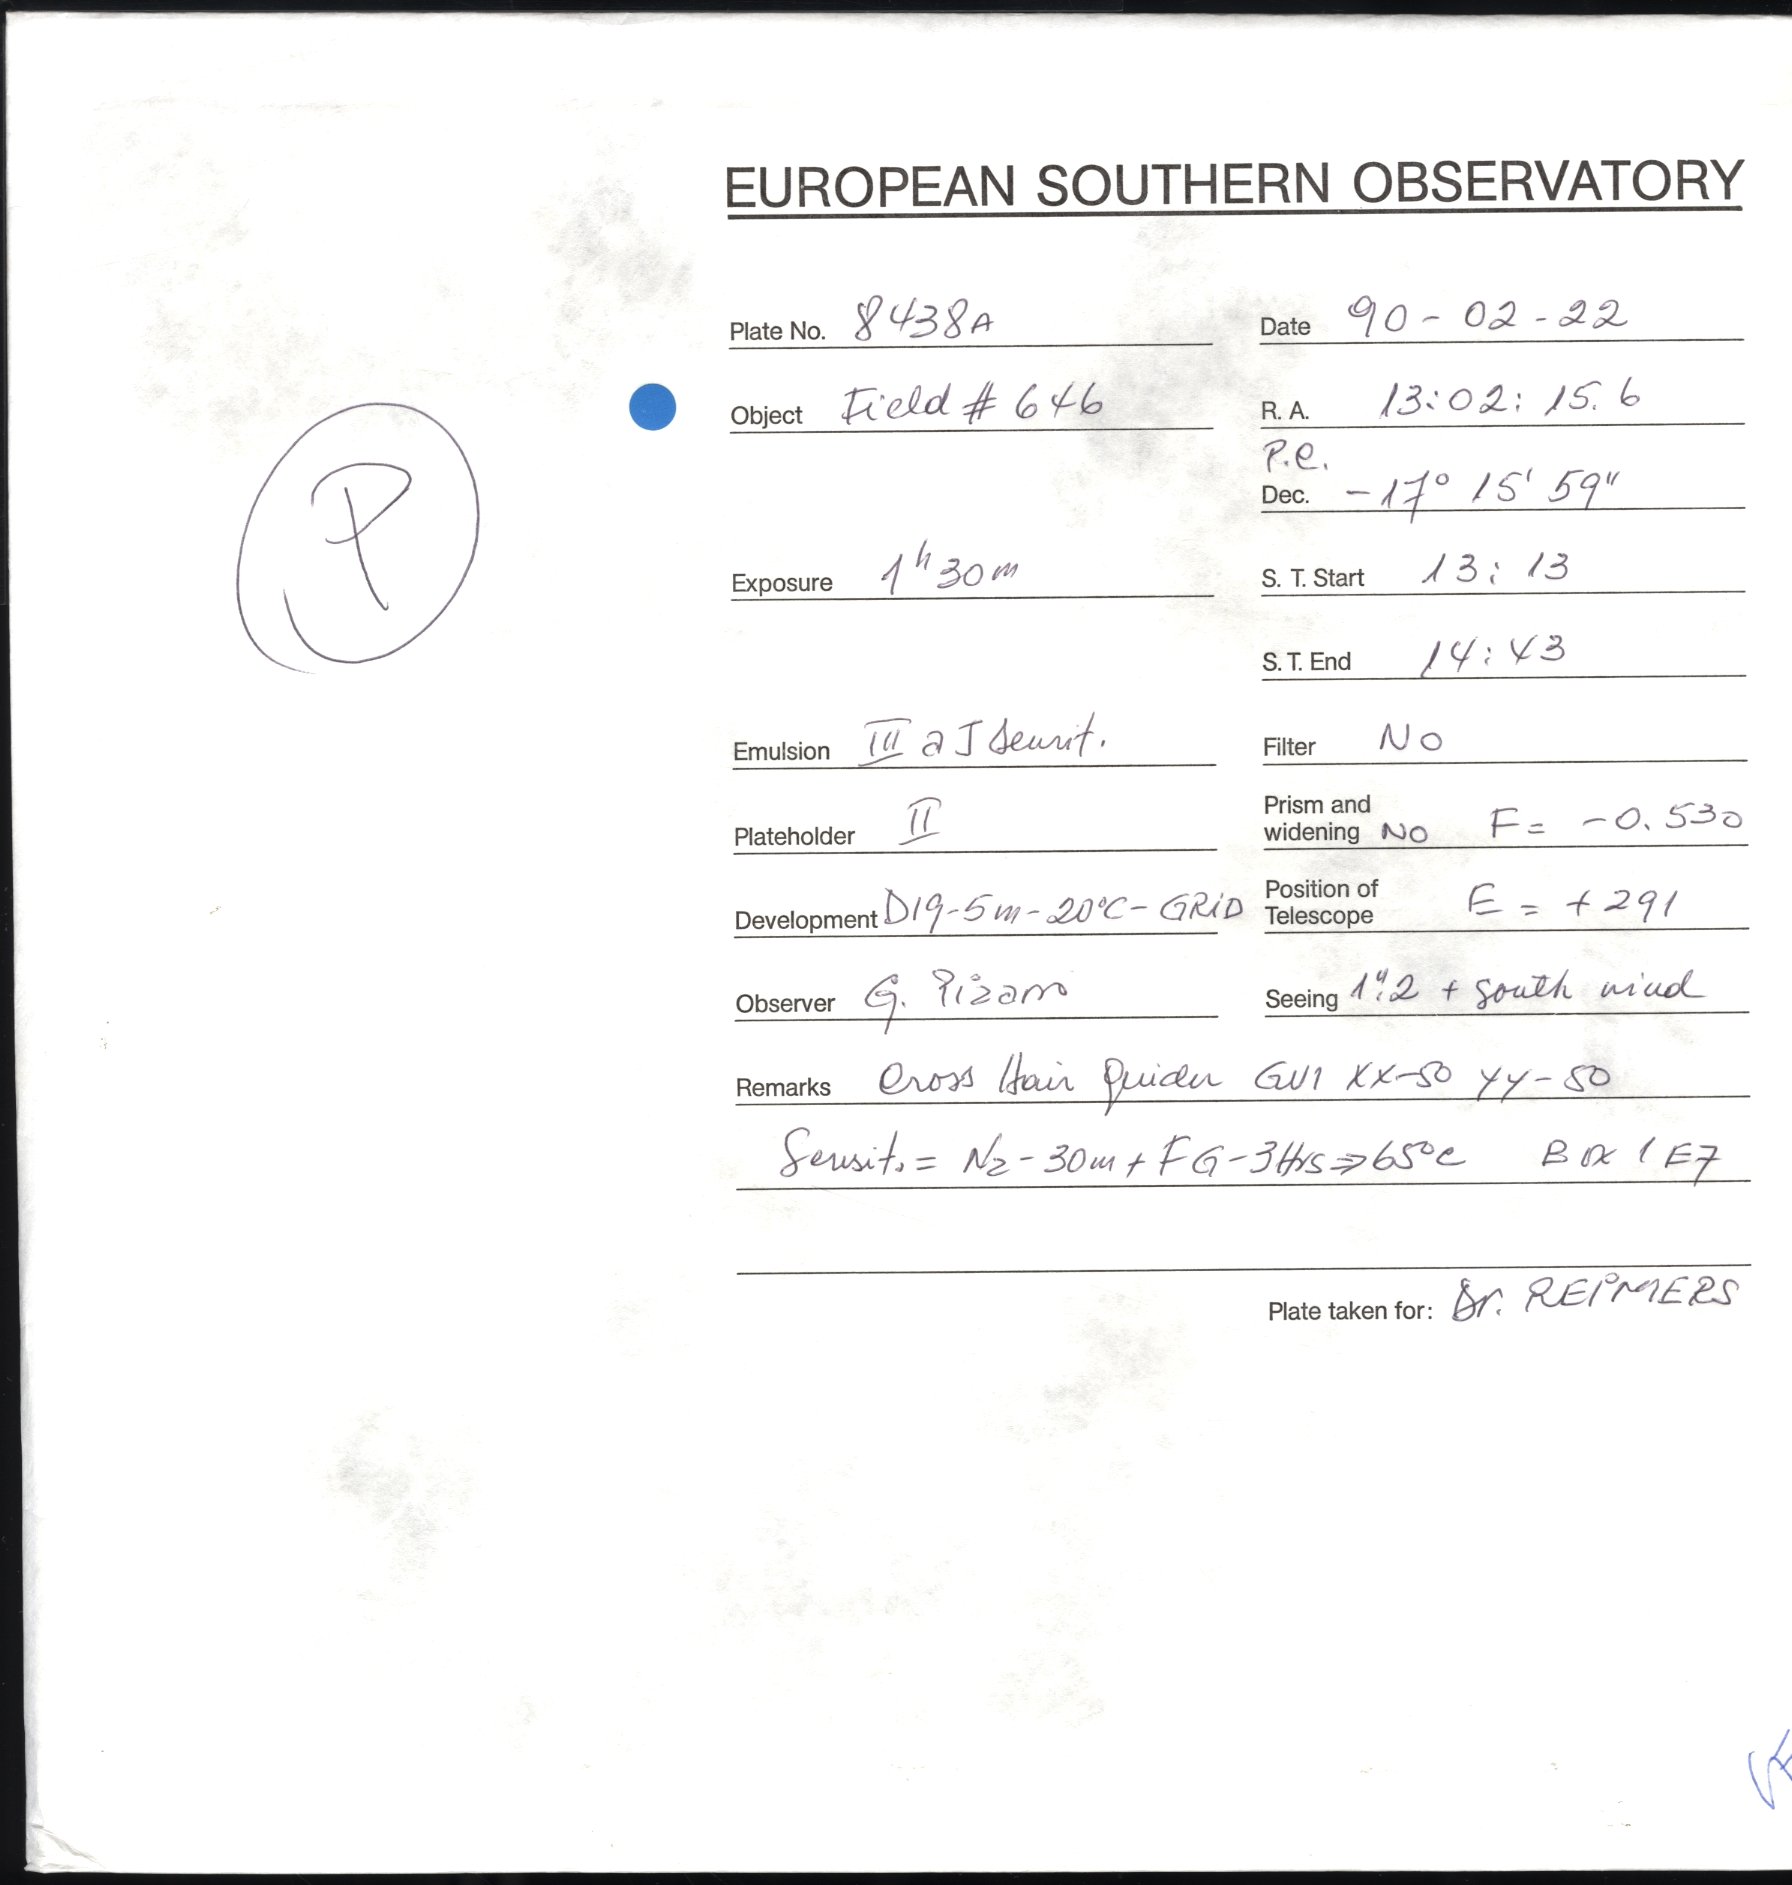 EUROPEAN SOUTHERN OBSERVATORY
Plate No. 8438A Date 90-02-22
Object Field # 646 R. A. 13:02:15.6
P.e.
Dec. -17° 15' 59"
P
Exposure 1h30m S. T. Start 13:13
S. T. End 14:43
Emulsion III a J Sensit. Filter No
Plateholder II Prism and widening No F= -0.530
Development D19-5m-20°C-GRiD Position of Telescope E = +291
Observer G. Pizarro Seeing 1".2 + south wind
Remarks Cross Hair Guider GV1 XX-50 YY-50
Sensit. = N2-30m + FG-3Hrs⇒65°C Box 1 E7
Plate taken for: Dr. REIMERS